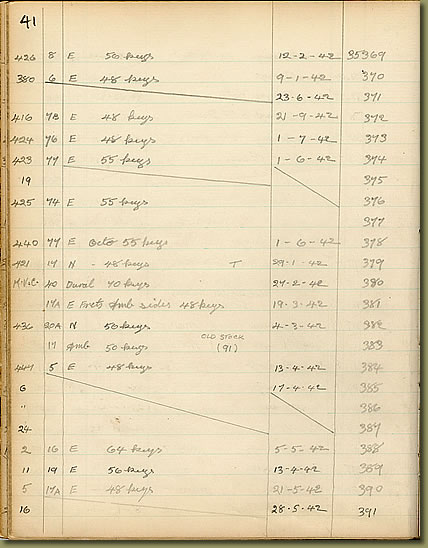 41
426 8 E 50 keys 12-2-42 35369
380 6 E 48 keys 9-1-42 370
23-6-42 371
416 7B E 48 keys 21-9-42 372
424 76 E 48 keys 1-7-42 373
423 77 E 55 keys 1-6-42 374
19 375
425 74 E 55 keys 376
377
440 77 E Octo 55 keys 1-6-42 378
421 17 N - 48 keys T 29-1-42 379
40 Dural 70 keys 27-2-42 380
17A E Frets Amb sides 48 keys 19-3-42 381
436 20A N 50 keys 4-3-42 382
OLD STOCK
17 Amb 50 keys (91) 383
447 5 E 48 keys 13-4-42 384
6 17-4-42 385
" 386
24 387
2 16 E 64 keys 5-5-42 388
11 19 E 56 keys 13-4-42 389
5 17A E 48 keys 21-5-42 390
16 28-5-42 391